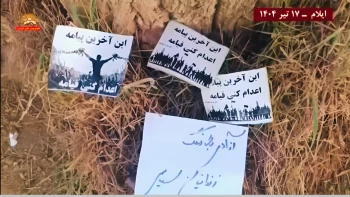 ایلام ـ ۱۷ تیر ۱۴۰۴
این آخرین پیامه
اعدام کنی قیامه
این آخرین پیامه
اعدام کنی قیامه
این آخرین پیامه
اعدام کنی قیامه
آزادی
زندانیان سیاسی